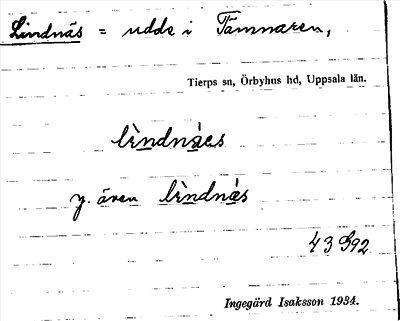 Lindnäs = udde i Tämnaren,
Tierps sn, Örbyhus hd, Uppsala län.
lìndnáes
y. även lìndnás
Ingegärd Isaksson 1934.